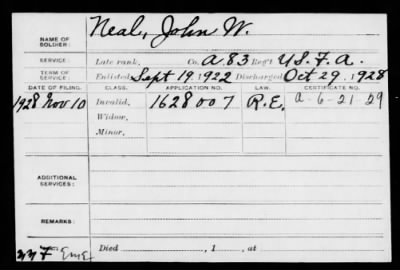 NAME OF SOLDIER: Neal, John W.
SERVICE: Late rank, Co. A. 83 Reg't U.S.F.A.
TERM OF SERVICE: Enlisted Sept 19. 1922 Discharged Oct 29. 1928
DATE OF FILING. CLASS. APPLICATION NO. LAW. CERTIFICATE NO.
1928 Nov 10 Invalid, 1628007 R.E. a-6-21 29
Widow,
Minor,
ADDITIONAL SERVICES:
REMARKS:
Died , 1 , at